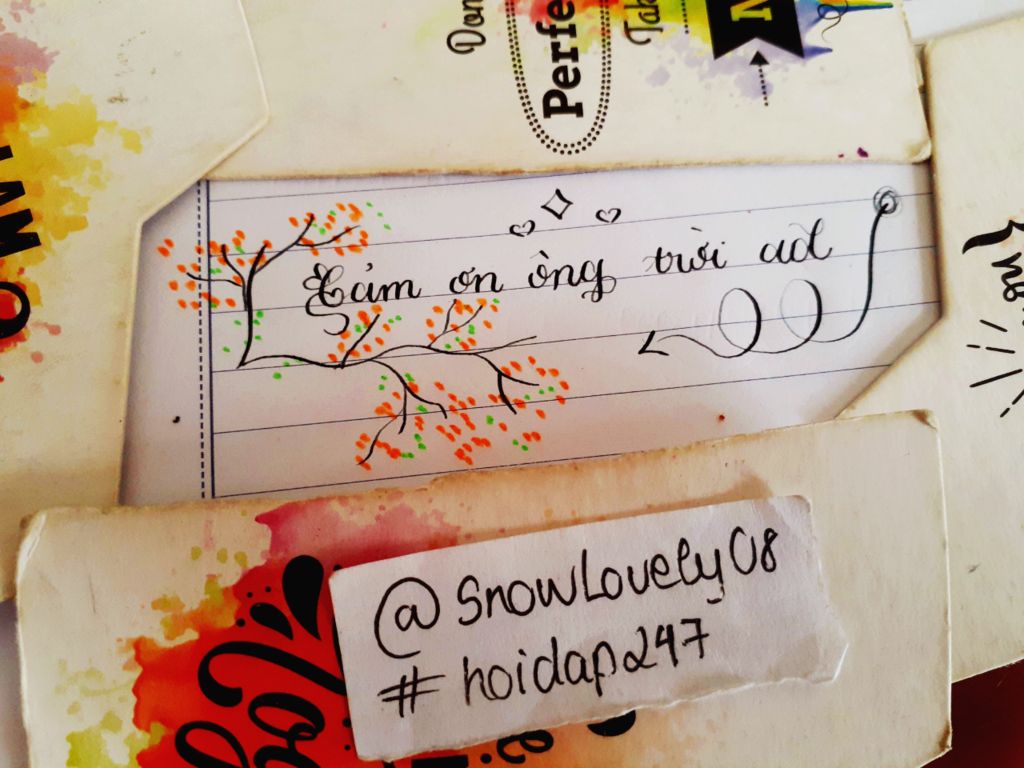 Don
Perfe
Tak
N
Cảm ơn ông trời ad
@SnowLovely08
#hoidap247